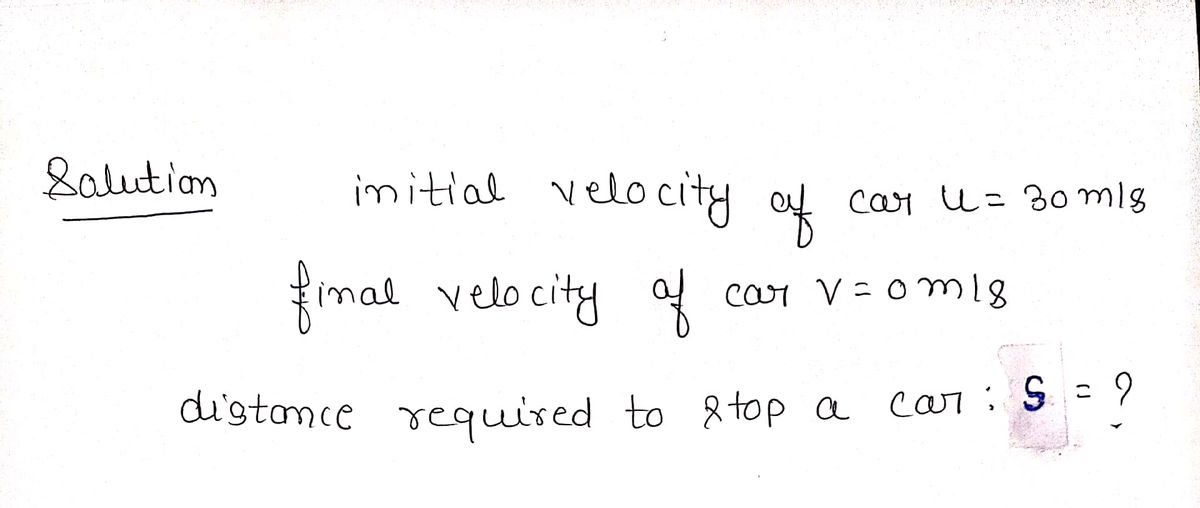 Solution initial velocity of car u = 30 m/s
final velocity of car v = 0 m/s
distance required to stop a car : S = ?